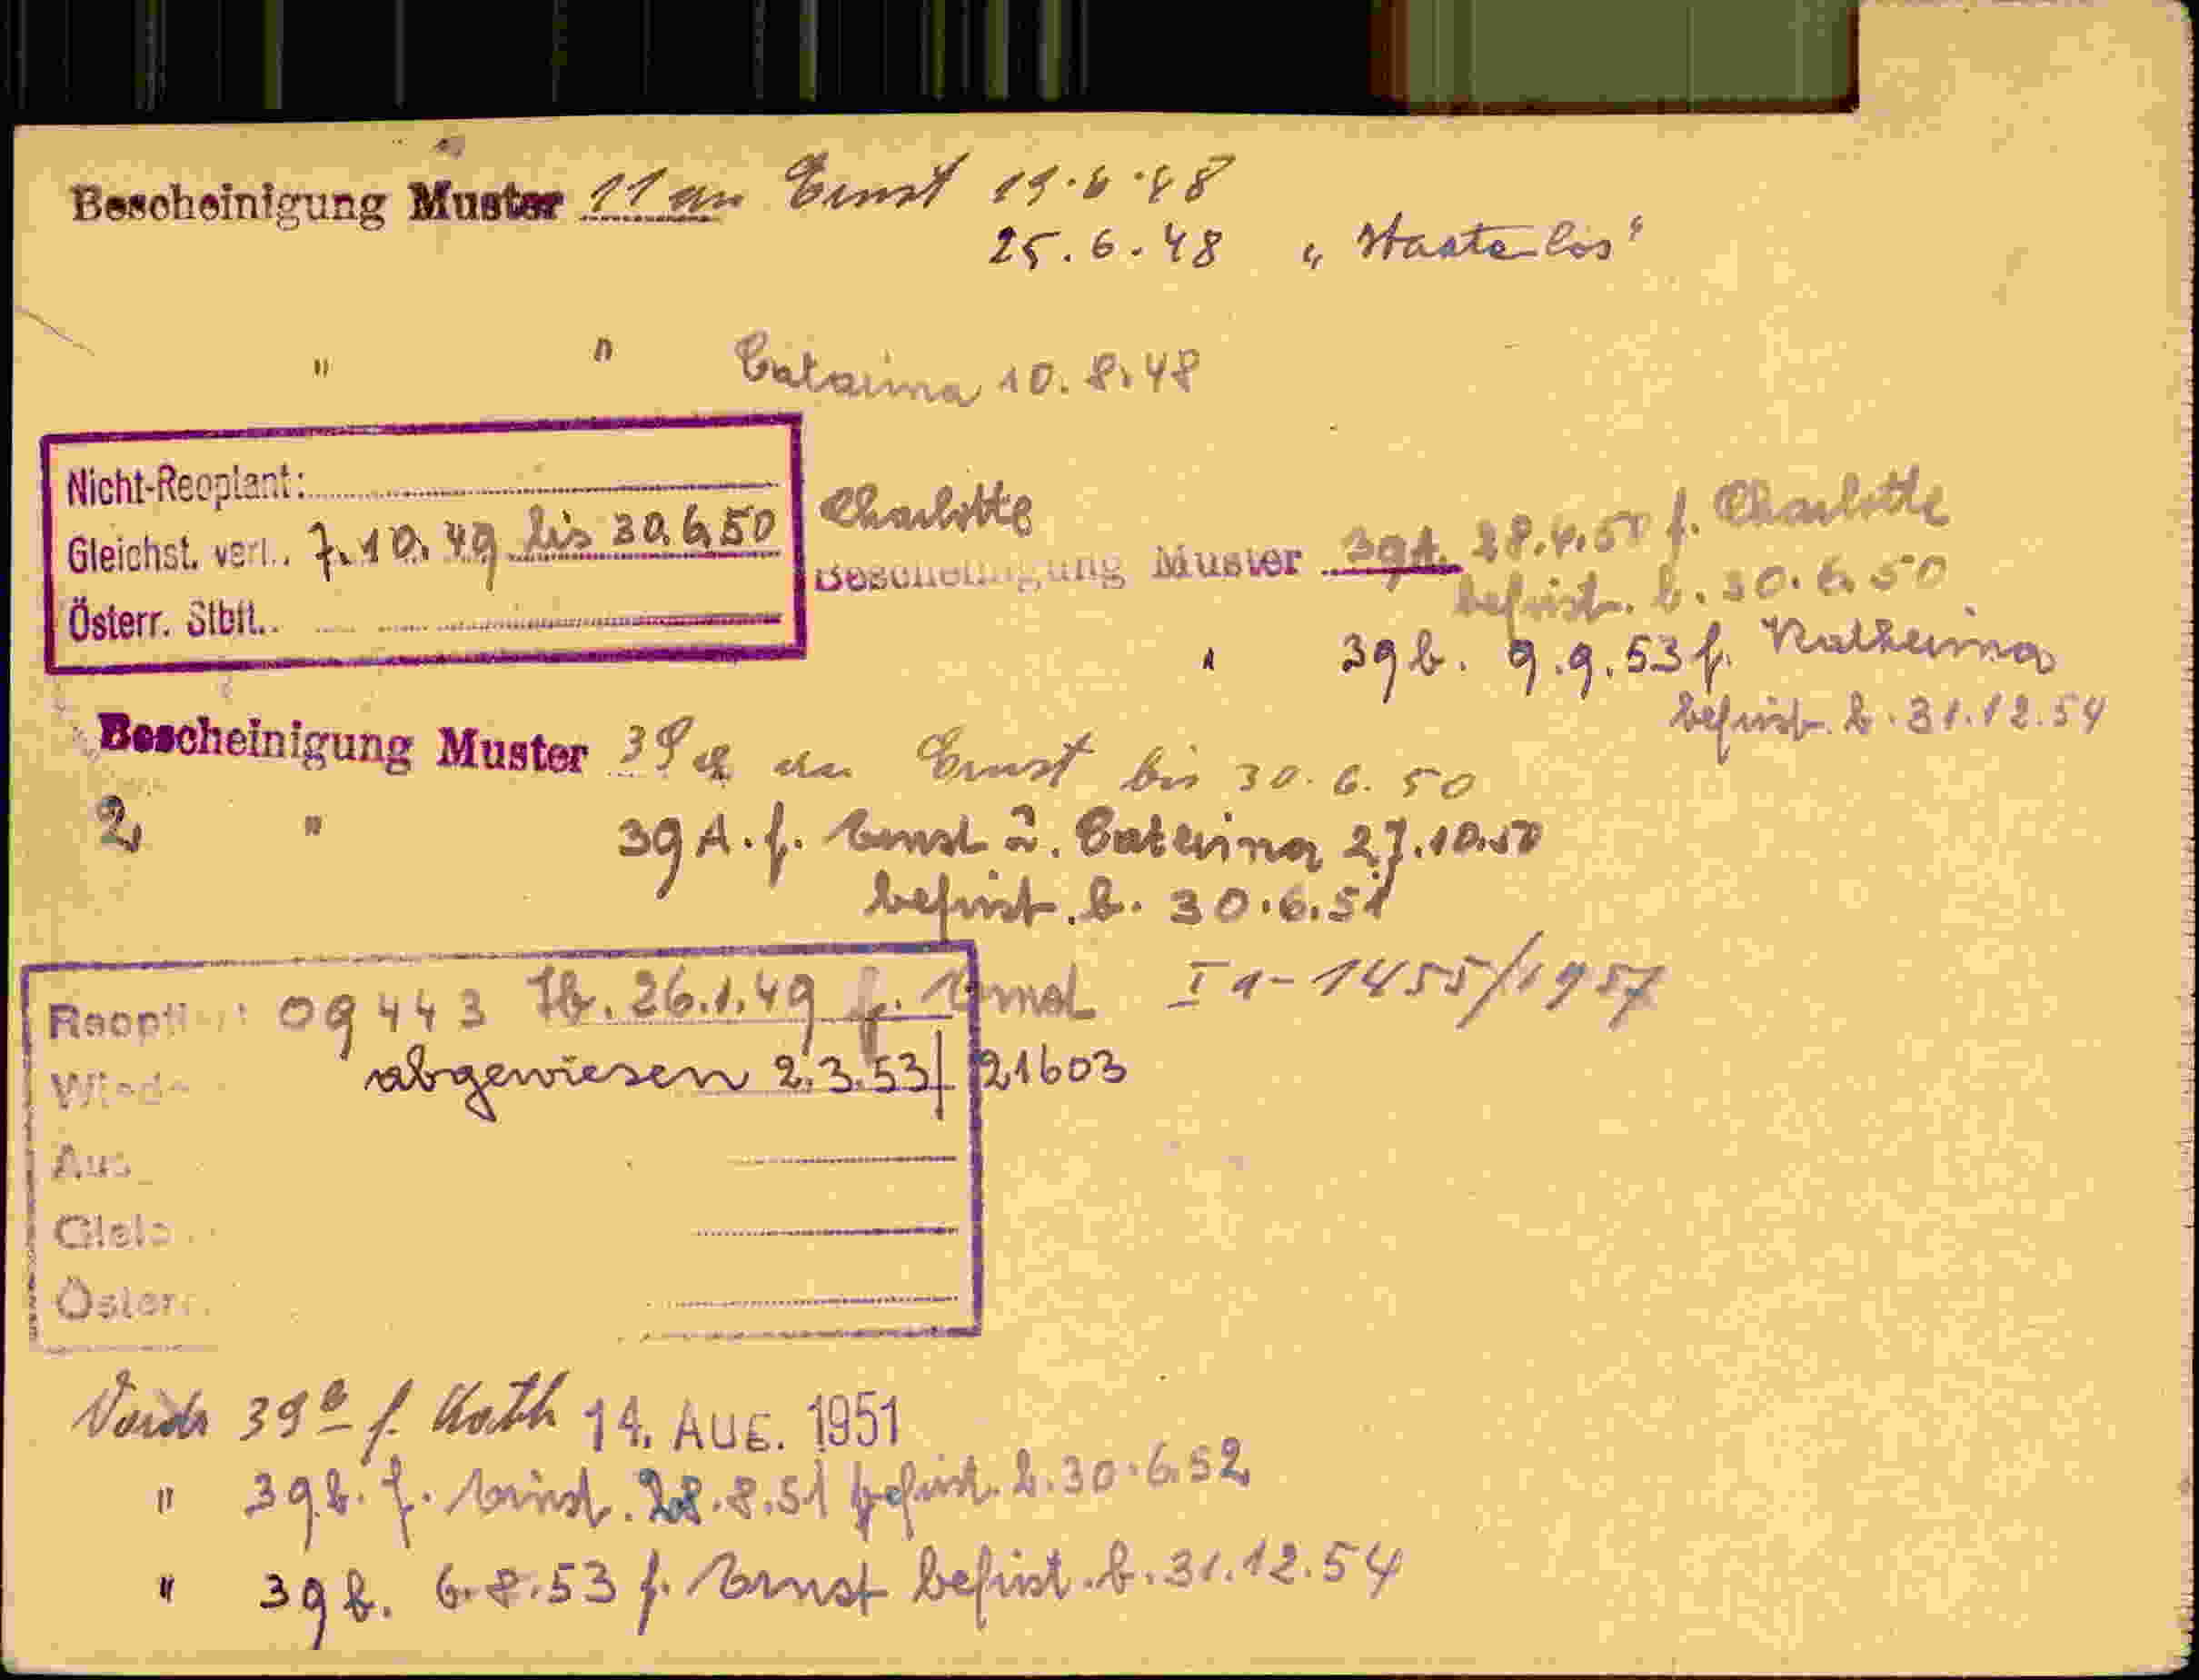 Bescheinigung Muster 11 an Ernst 19.6.48
25.6.48 "Staatenlos"
" " Catarina 10.8.48
Nicht-Reoptant:
Gleichst. verl.. 7.10.49 bis 30.6.50 Charlotte
Österr. Stbft..
Bescheinigung Muster 39A. 28.4.50 f. Charlotte
befrist. b. 30.6.50
" 39b. 9.9.53 f. Katherina
befrist. b. 31.12.54
Bescheinigung Muster 39a an Ernst bis 30.6.50
2, " 39A. f. Ernst u. Caterina 27.10.50
befrist. b. 30.6.51
Reopt 09443 Ib. 26.1.49 f. Ernst I a-1455/1957
Wied abgewiesen 2.3.53/21603
Aus
Gleic
Österr.
Vordr 39b f. Kath 14. AUG. 1951
" 39b. f. Ernst. 28.8.51 befrist. b. 30.6.52
" 39b. 6.8.53 f. Ernst befrist. b. 31.12.54